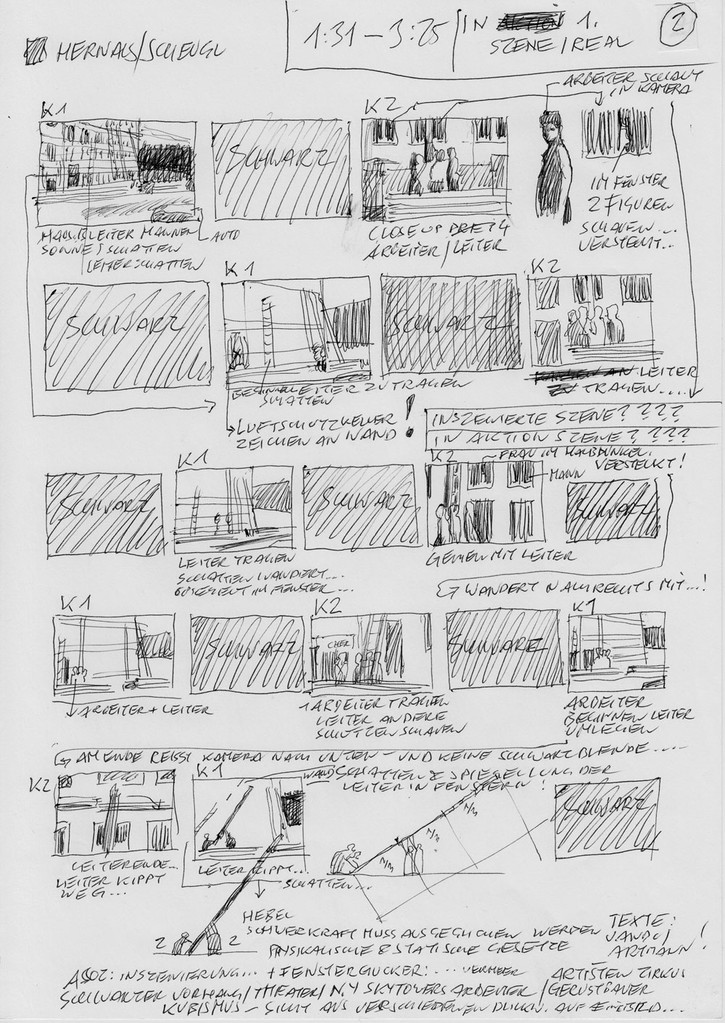 HERNALS/SCHEUGL
1:31 – 3:25 / IN AKTION 1.
SZENE / REAL
2
ARBEITER SCHAUT
IN KAMERA
K1
SCHWARZ
K2
IM FENSTER
2 FIGUREN
SCHAUEN...
VERSTEHT...
HAUS LEITER MÄNNER
SONNE SCHATTEN
LEITERSCHATTEN
AUTO
CLOSE UP
ARBEITER / LEITER
SCHWARZ
K1
SCHWARZ
K2
LEITER ZU TRAGEN
SCHATTEN
AN LEITER
ZU TRAGEN....
→ LUFTSCHUTZKELLER
ZEICHEN AN WAND!
INSZENIERTE SZENE? ? ? ?
IN AKTION SZENE? ? ? ?
SCHWARZ
K1
SCHWARZ
K2
~ FRAU IM HAUSDUNKEL
VERSTECKT!
MANN
SCHWARZ
LEITER TRAGEN
SCHATTEN WANDERT...
IM FENSTER...
GEHEN MIT LEITER
WANDERT NACH RECHTS MIT...!
K1
SCHWARZ
K2
CHER
SCHWARZ
K1
ARBEITER + LEITER
1 ARBEITER TRAGEN
LEITER ANDERE
SCHAUEN
ARBEITER
BEGINNEN LEITER
UMLEGEN
AM ENDE REISST KAMERA NACH UNTEN – UND KEINE SCHWARZBLENDE....
K2
K1
WANDSCHATTEN & SPIEGELUNG DER
LEITER IN FENSTERN!
SCHWARZ
LEITERENDE...
LEITER KIPPT
WEG...
LEITER KIPPT...
SCHATTEN...
HEBEL
SCHWERKRAFT MUSS AUSGEGLICHEN WERDEN
PHYSIKALISCHE & STATISCHE GESETZE
2 2
TEXTE:
JANDL/
ARTMANN!
ASSOZ: INSZENIERUNG... + FENSTERGUCKER: ... VERMEER
ARTISTEN ZIRKUS
SCHWARZER VORHANG / THEATER / N.Y SKYTOWERS ARBEITER / GERÜSTBAUER
KUBISMUS – SICHT AUS VERSCHIEDENEN BLICKW. AUF